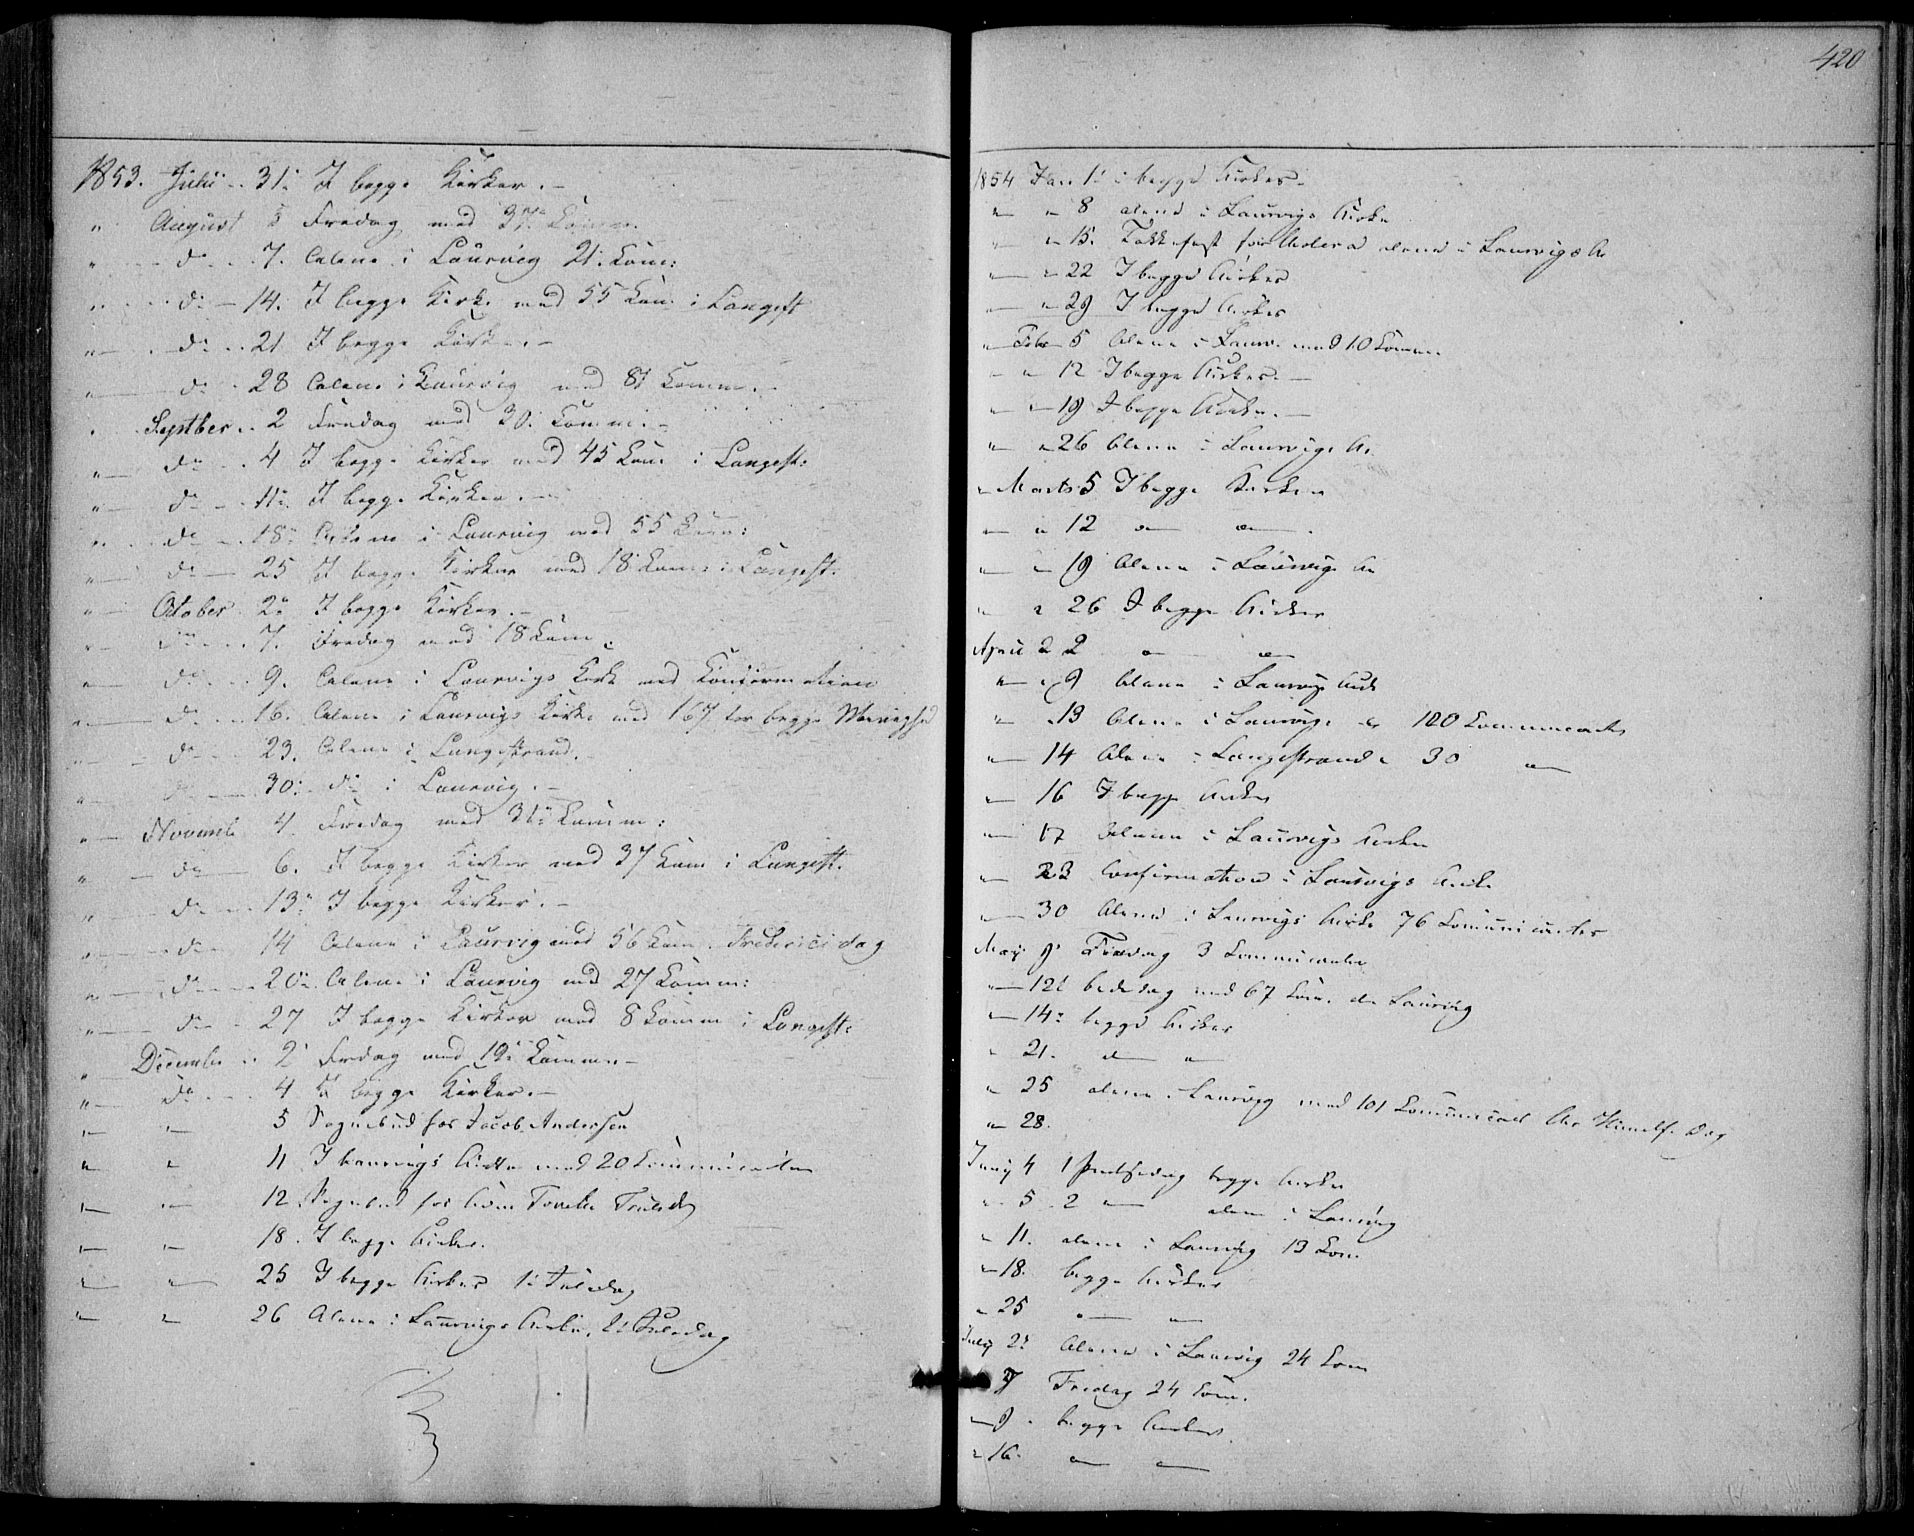 1853. Julii .. 31: I begge Kirker. –
" August 5 Fredag med 31 Comm.
" — do .. 7. Alene i Laurvig 21: Com:
" .. do — 14. I begge Kirk. med 55 Com i Langest
" — . do .. 21 I begge Kirker. –
" — do . 28 Alene i Laurvig med 81 Comm. –
. Septber .. 2 Fredag med 30. Comm. –
" — do .. 4 I begge Kirker med 45 Com i Langest:
" — do – . 11: I begge Kirker. –
" . do – . 18: Alene i Laurvig med 55 Com:
" — do — 25 I begge Kirker med 18 Com: i Langest.
" — October . 2: I begge Kirker. –
" – do .. 7. Fredag med 18 Com.
" — do .. 9. Alene i Laurvigs Kirke med Konfirmation
" — do .. 16. Alene i Laurvigs Kirke med 167 for begge Menighed
" – do .. 23. Alene i Langestrand. –
" – do — 30: do i Laurvig. –
" — Novembr 4. Fredag med 31: Comm:
" – do — 6. I begge Kirker med 37 Com i Langest.
" — do .. 13: I begge Kirker. –
" — do .. 14 Alene i Laurvig med 56 Com. Friderici dag
" — do .. 20: Alene i Laurvig med 27 Comm:
" — do . 27 I begge Kirker med 8 Comm i Langest:
" Decembr .. 2 Fredag med 19: Comm. –
" — do .. 4 I begge Kirker. –
" — " 5 Sognebud for Jacob Andersen
" " 11 I Laurvigs Kirke med 20 Communicanter
" — " 12 Sognebud for
" — " 18. I begge Kirker.
" — " 25 I begge Kirker 1: Juledag
" — " 26 Alene i Laurvigs Kirke, 2: Juledag
420
1854 Jan 1: i begge Kirker –
" — " 8 alene i Laurvigs Kirke
" — " 15. Takkefest for Cholera alene i Laurvigs K
" — " 22 I begge Kirker
" — " 29 I begge Kirker
" Febr 5 Alene i Laurv. med 10 Comm.
" – " 12 I begge Kirker. –
" — " 19 I begge Kirker. –
" — " 26 Alene i Laurvigs K.
" Marts 5 I begge Kirker
" — " 12 " — " — .
" — " 19 Alene i Laurvigs K
" — " 26 I begge Kirker
April 2 " — " —
" — " 9 Alene i Laurvigs Kirk
" — " 13 Alene i Laurvigs K 120 Communicanter
" — 14 Alene i Langestrand K 30 " —
" — 16 I begge Kirker
" — 17 Alene i Laurvigs Kirke
" — 23 Confirmation i Laurvigs Kirke
" — 30 Alene i Laurvigs Kirke 76 Communicanter
May 9 Fredag 3 Communicanter
" — 12t bededag med 67 Com. do Laurvig
" — 14: begge Kirker
" 21. " — "
" 25 alene i Laurvig med 101 Communicant Chr Himelf. Dag
" 28.
Juny 4 1 Pintsedag begge Kirker
" 5 . 2 " — alene i Laurvig
" 11. alene i Laurvig 13 Com
" 18. begge Kirker
" 25 " — " —
July 2: Alene i Laurvig 24 Com
7 Fredag 24 Com.
" 9 . begge Kirker
" 16. " — " —